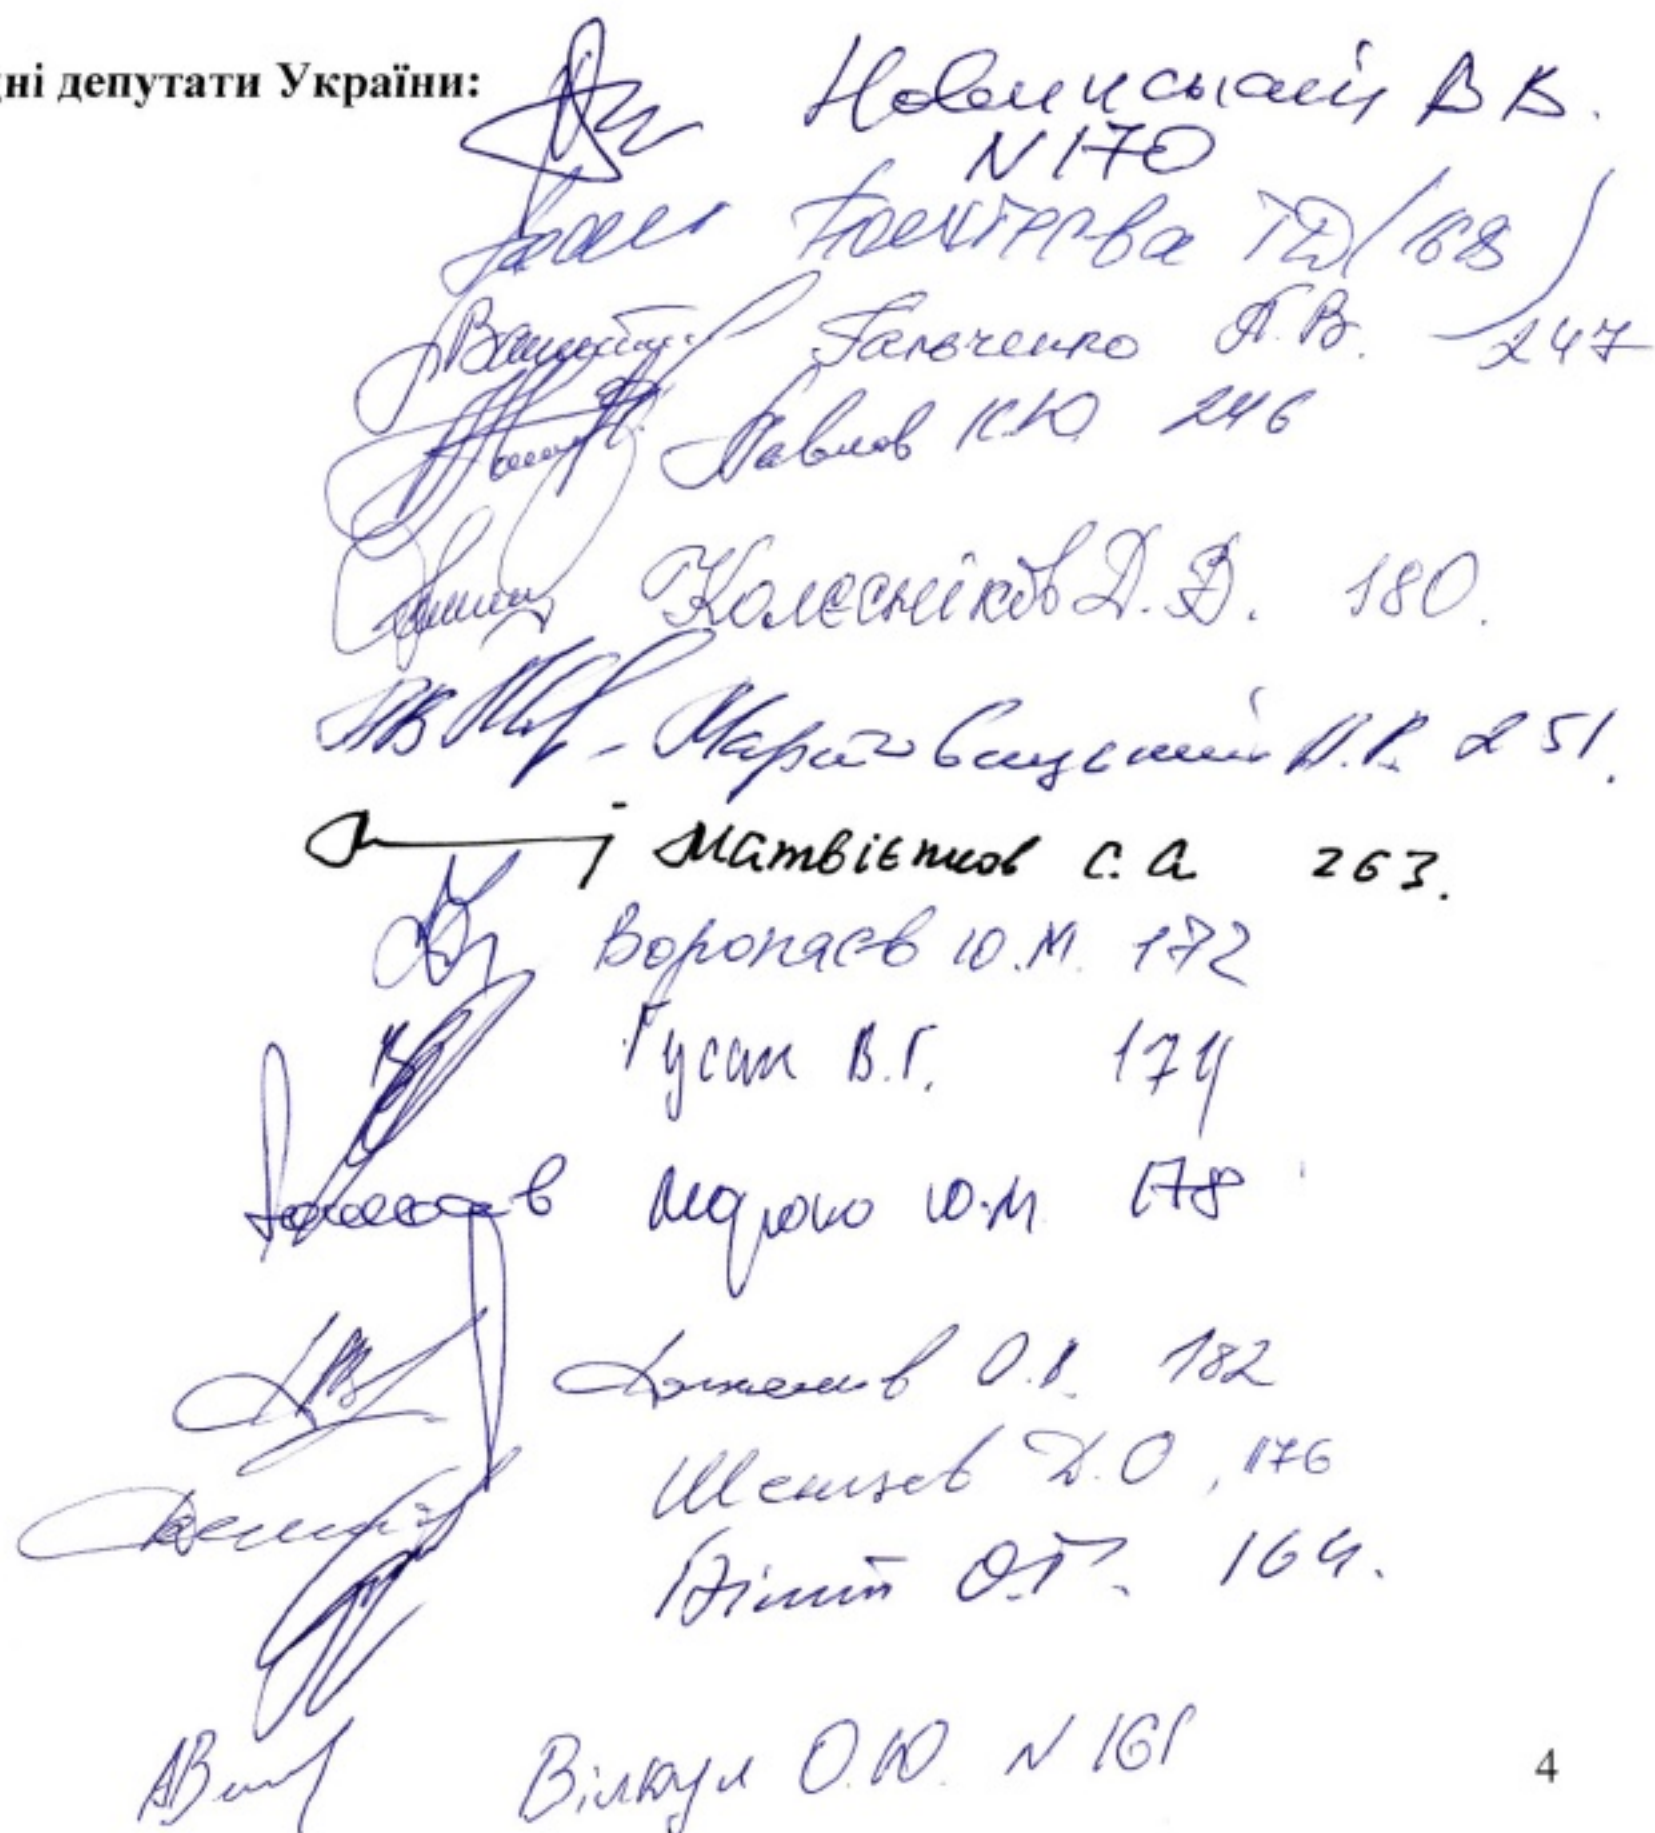 ні депутати України:
Новинський В В.
N 170
Бахтеєва ТД/168
Гальченко А.В. 247
Павлов К.Ю 246
Колєсніков Д.В. 180.
Мартовицький А.В. 251.
Матвієнков С.А 263.
Воропаєв Ю.М. 172
Гусак В.Г. 174
Мороко Ю.М. 178
Долженков О.В. 182
Шенцев Д.О, 176
О.Г. 164.
Вілкул О.Ю. N 161
4